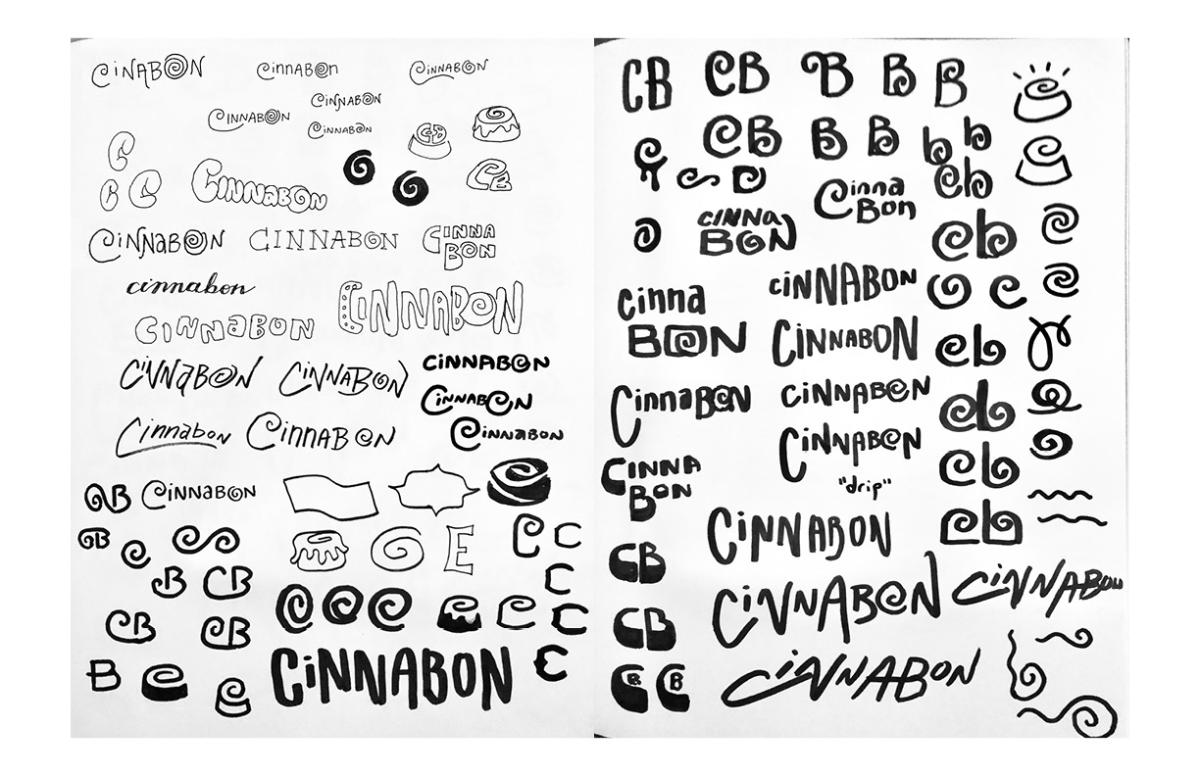 CiNABON
CinnABOn
CiNNABON
CiNNABON
CiNNABON
CiNNABON
CB
C
C C
CiNNABON
CB
CiNNABON
CINNABON
CINNA
BON
cinnabon
CINNaBON
CiNNABON
CiNNaBON
CiNNABON
CiNNABON
CiNNABON
Cinnabon
CinnABON
CiNNABON
CB
CiNNaBON
CB
E
C C
CB
CB
C
CB
CB
C C C
C
C
B
CiNNABON
C
CB
CB
B
B
B
CB
B
B
b
b
cb
Cinna
Bon
CiNNa
BON
cb
cinna
BON
ciNNABON
C
C
CiNNABON
cb
CinnaBON
CiNNABON
cb
CiNNABON
"drip"
cb
CINNA
BON
CiNNABON
cb
CB
CiNNABON
CiNNABON
CB
CB
CB
CiNNABON